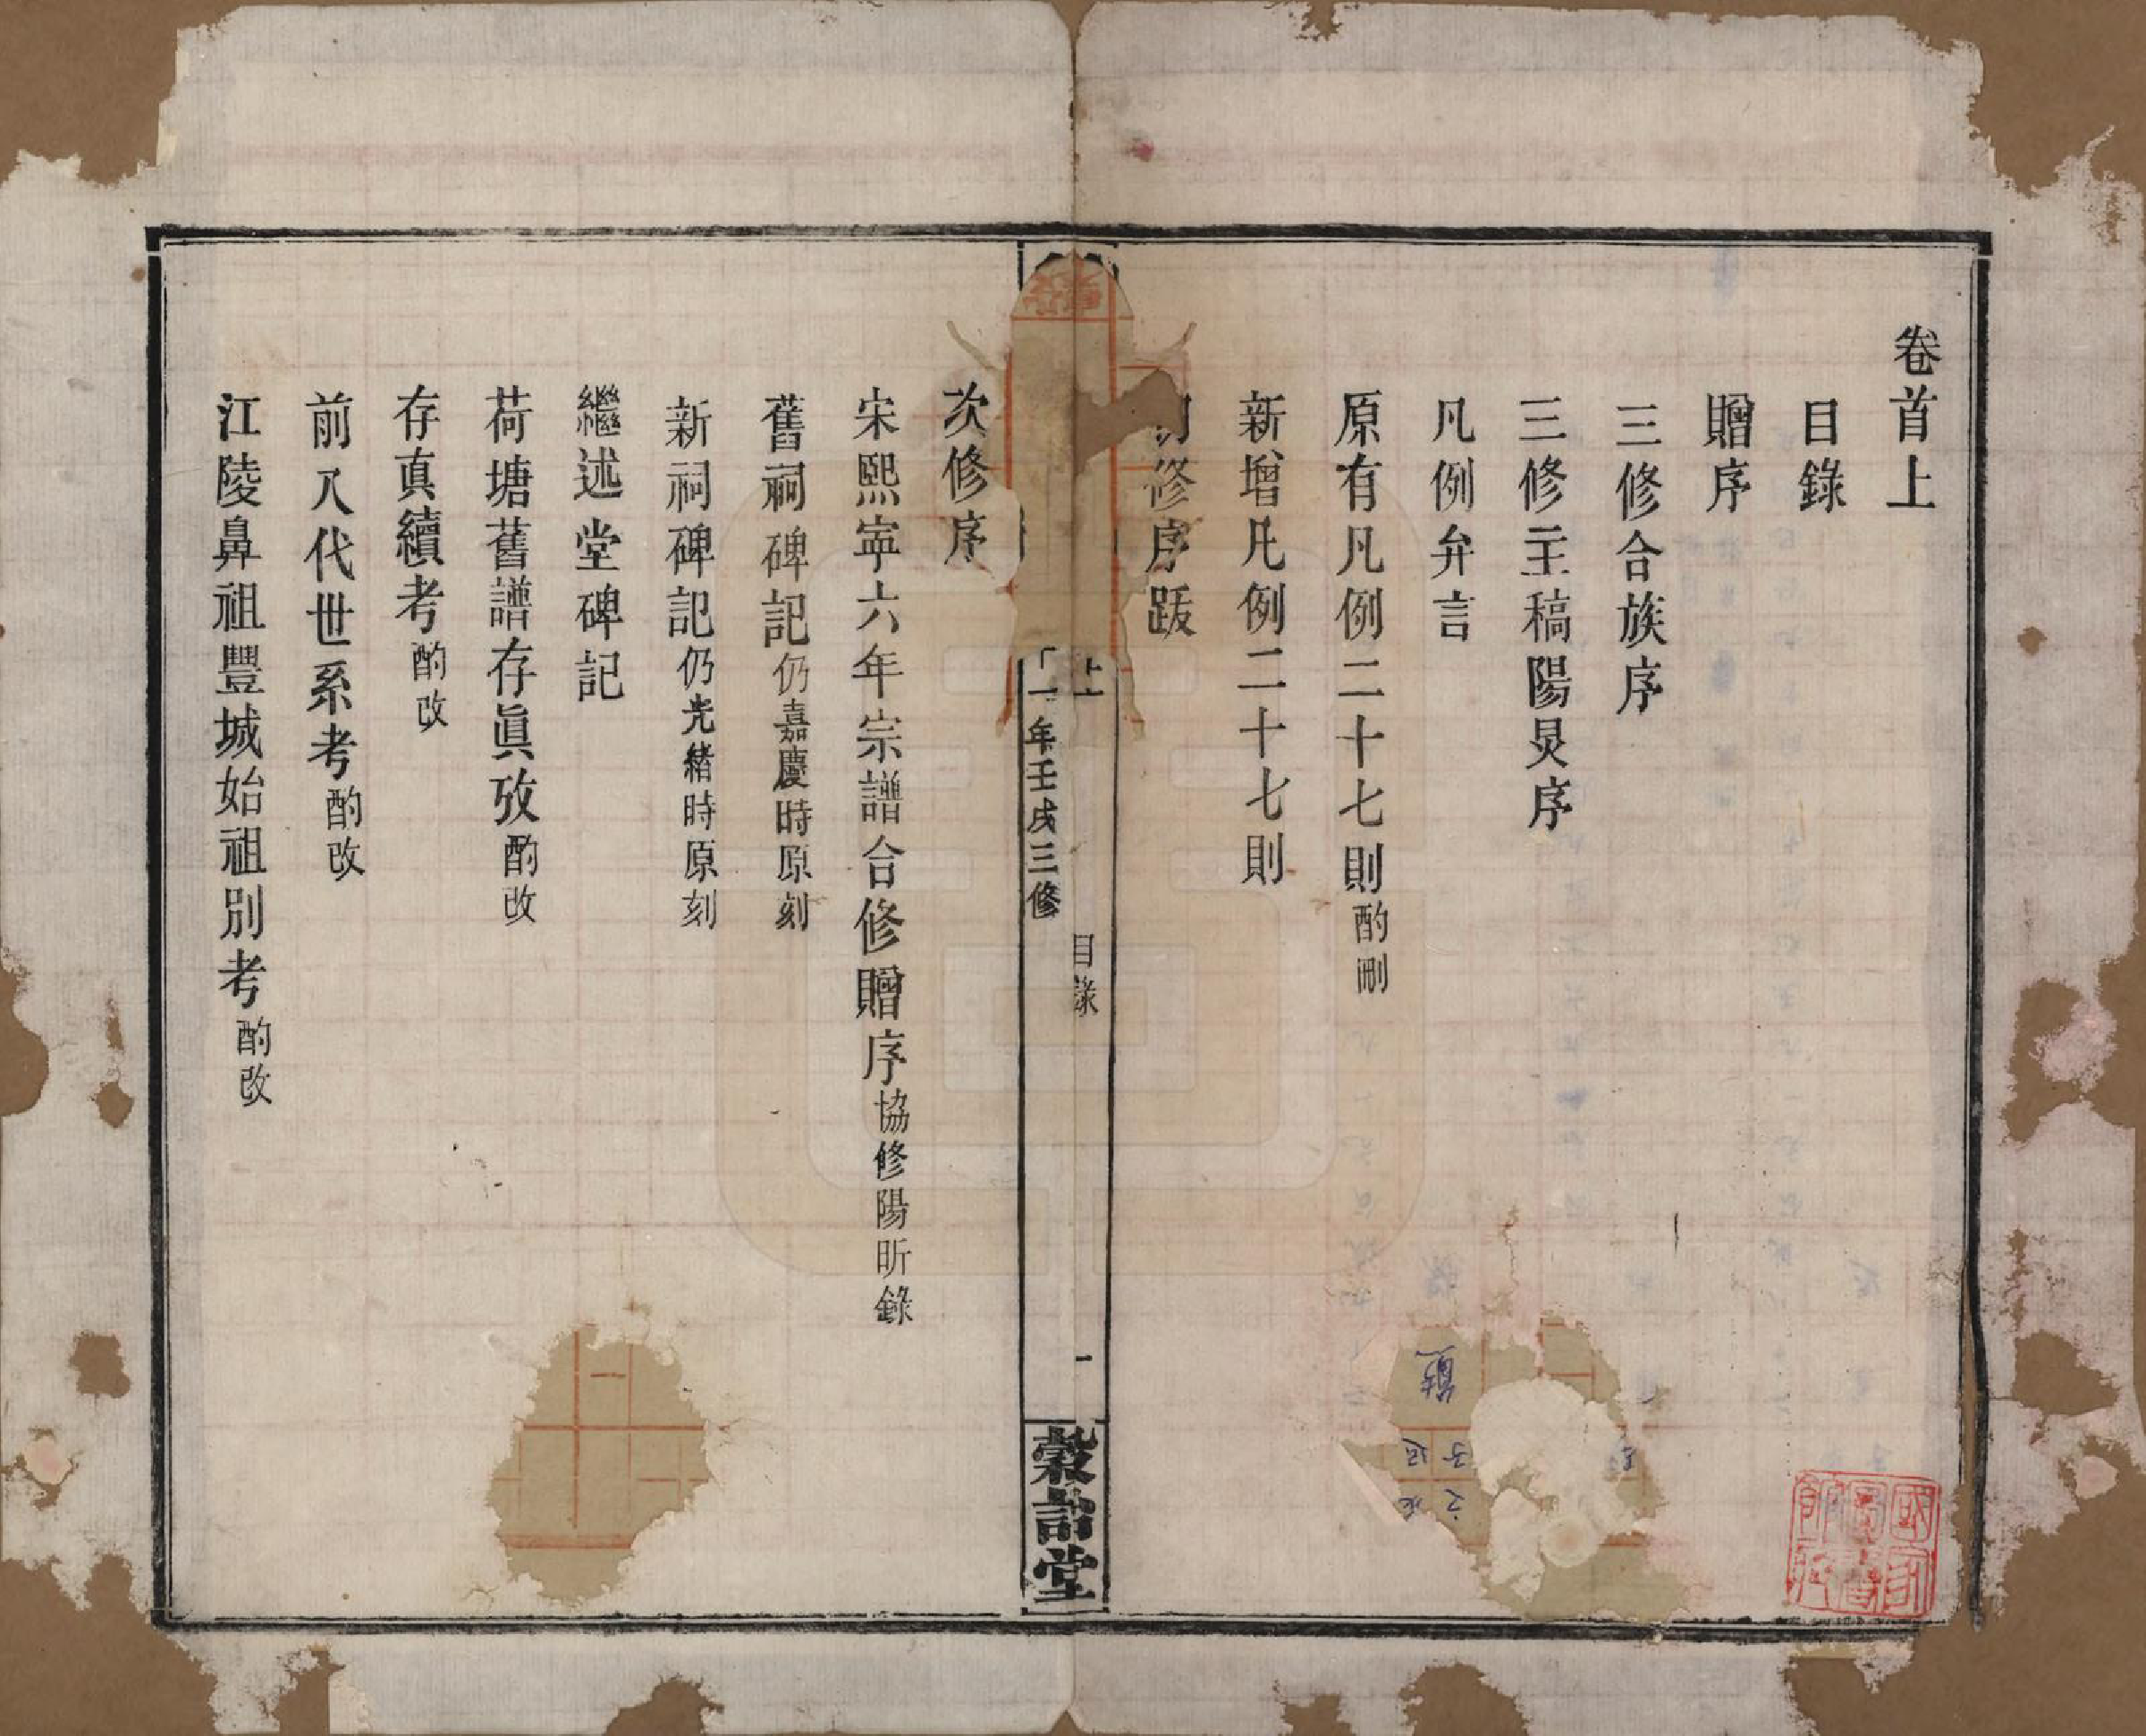 卷首上
目錄
贈序
三修合族序
三修主稿陽炅序
凡例弁言
原有凡例二十七則酌刪
新增凡例二十七則
修序跋
上
目錄
一
一年壬戌三修
穀詒堂
次修序
宋熙寧六年宗譜合修贈序協修陽昕錄
舊祠碑記仍嘉慶時原刻
新祠碑記仍光緒時原刻
繼述堂碑記
荷塘舊譜存眞攷酌改
存真續考酌改
前八代世系考酌改
江陵鼻祖豐城始祖別考酌改
國家圖書館藏